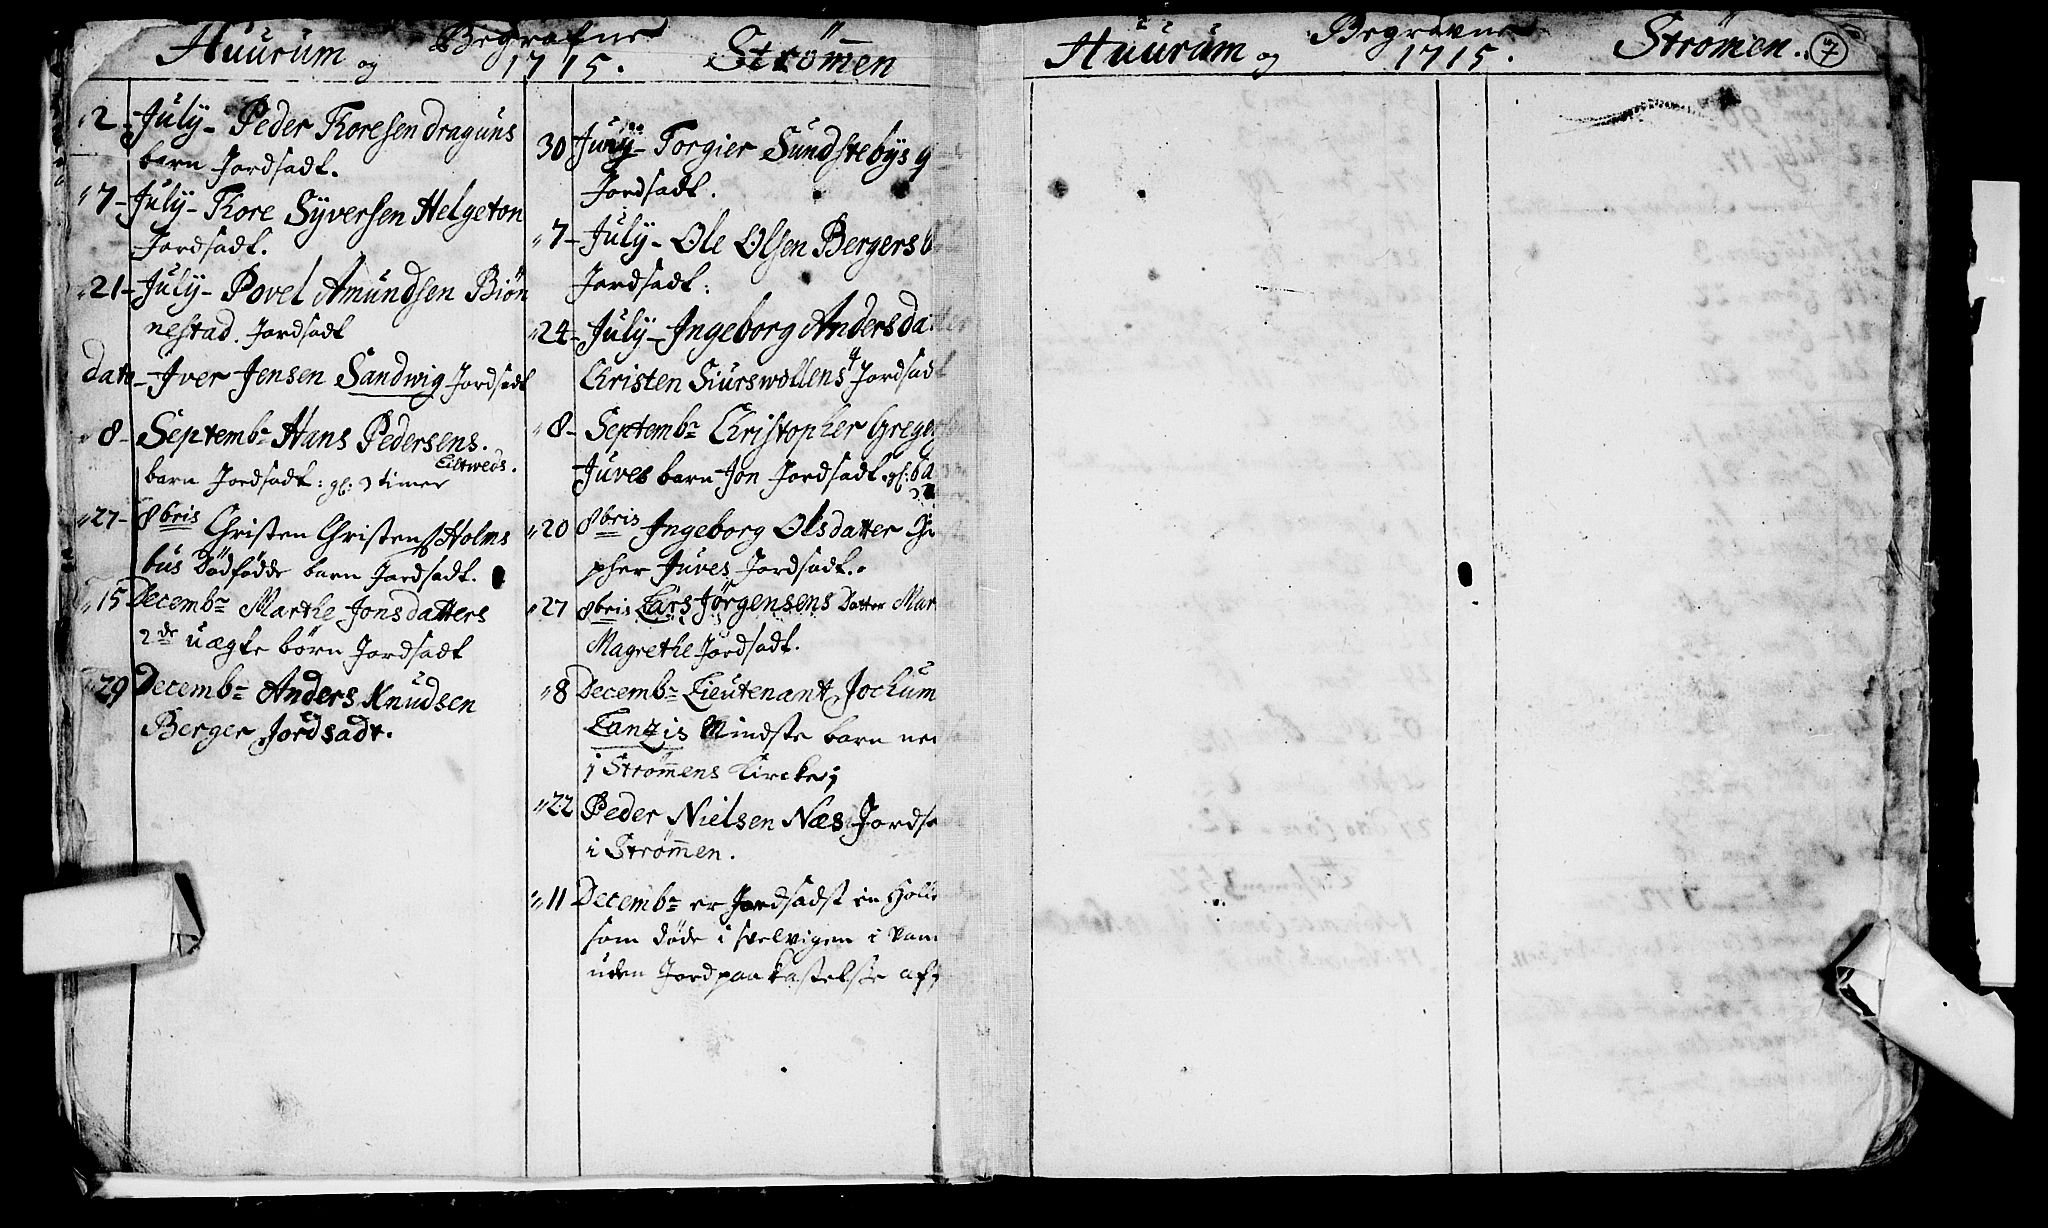 Huurum og Begrafne 1715. Strömen
2 July - Peder Thoresen draguns
barn Jordsadt.
7 - July - Thore Syversen Helgeton
Jordsadt.
21 - July - Povel Amundsen Biön
nestad. Jordsadt
dato - Iver Jensen Sandwig Jordsadt
8 - Septembr Hans Pedersens.
barn Jordsadt: gl: 3 timer
27 - 8bris Christen Christens Holms
bus Dödfödde barn Jordsadt.
15 Decembr Marthe Jonsdatters
2de uægte börn Jordsadt
29 Decembr Anders Knudsen
Berger Jordsadt.
30 Juny - Torgier Sundstebys q
Jordsadt.
7 - July - Ole Olsen Bergers
Jordsadt:
24 - July - Ingeborg Andersda
Christen Siurswollens q Jordsadt
8 - Septembr Christopher Greger
Juves barn Jon Jordsadt. gl:
20 8bris Ingeborg Olsdatter
pher Juves Jordsadt.
27 8bris Lars Jörgensens Datter Mar
Magrethe Jordsadt.
8 Decembr Lieutenant Jochum
Lanzis Mindste barn
i Strömens Kircke
22 Peder Nielsen Næs Jords
i Strömen.
11 Decembr er Jordsadst en Holl
som döde i svelvigen i
uden Jordpaakastelse af
Huurum og Begravne 1715. Strömen. 7